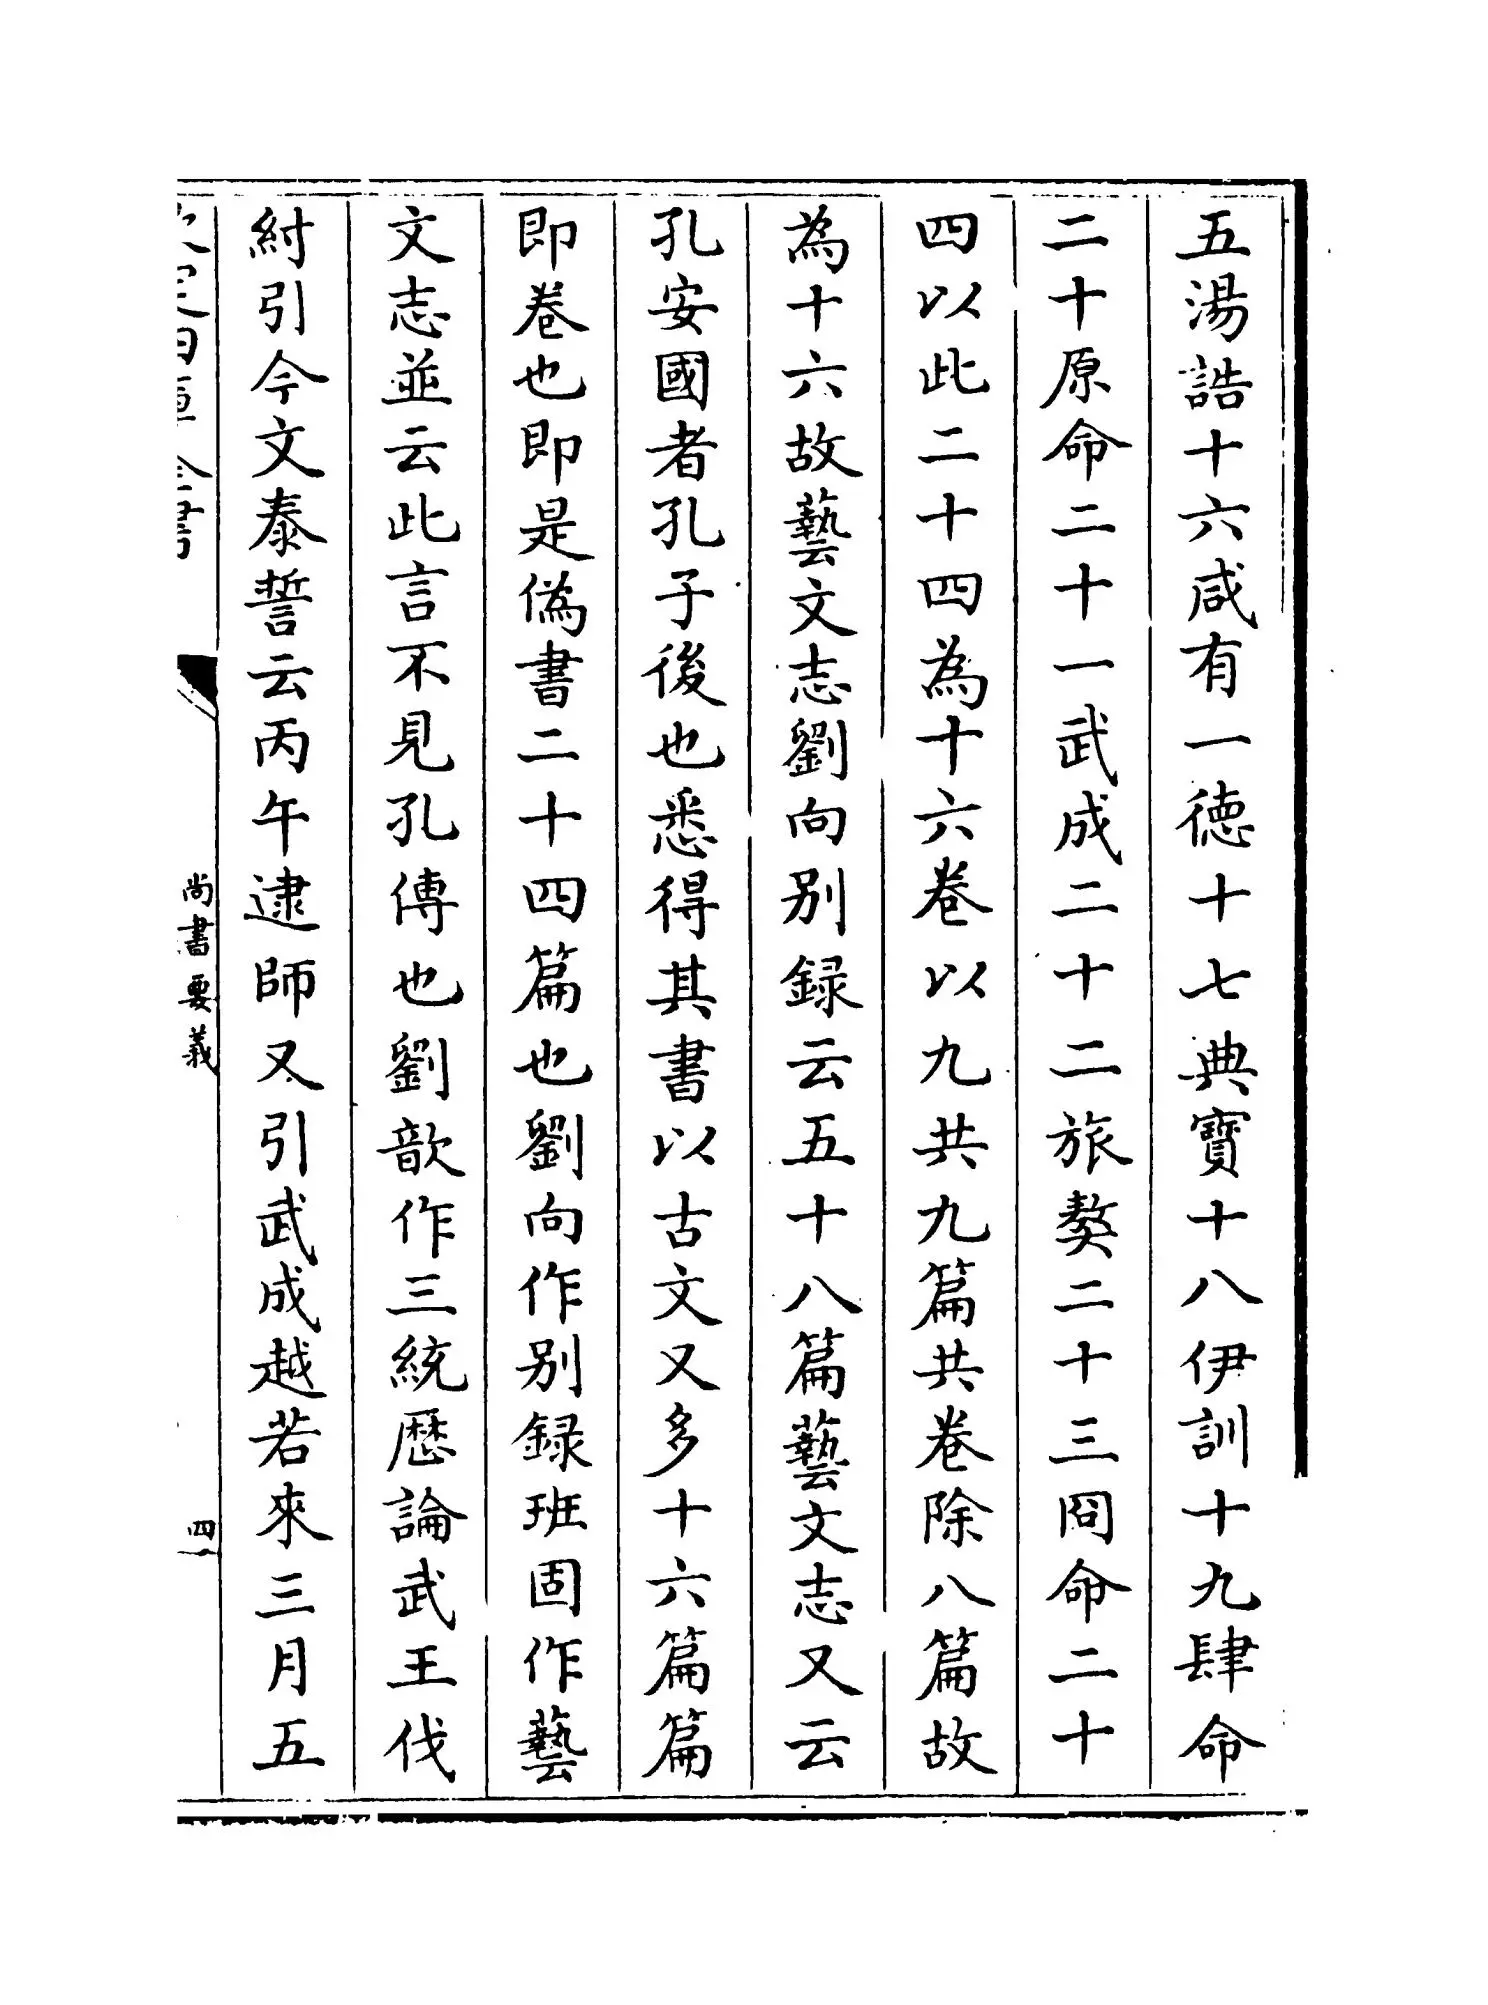 五湯誥十六咸有一德十七典寶十八伊訓十九肆命
二十原命二十一武成二十二旅獒二十三冏命二十
四以此二十四為十六卷以九共九篇共卷除八篇故
為十六故藝文志劉向别録云五十八篇藝文志又云
孔安國者孔子後也悉得其書以古文又多十六篇篇
即卷也即是偽書二十四篇也劉向作别録班固作藝
文志並云此言不見孔傳也劉歆作三統厯論武王伐
紂引今文泰誓云丙午逮師又引武成越若來三月五
欽定四庫全書
尚書要義
四